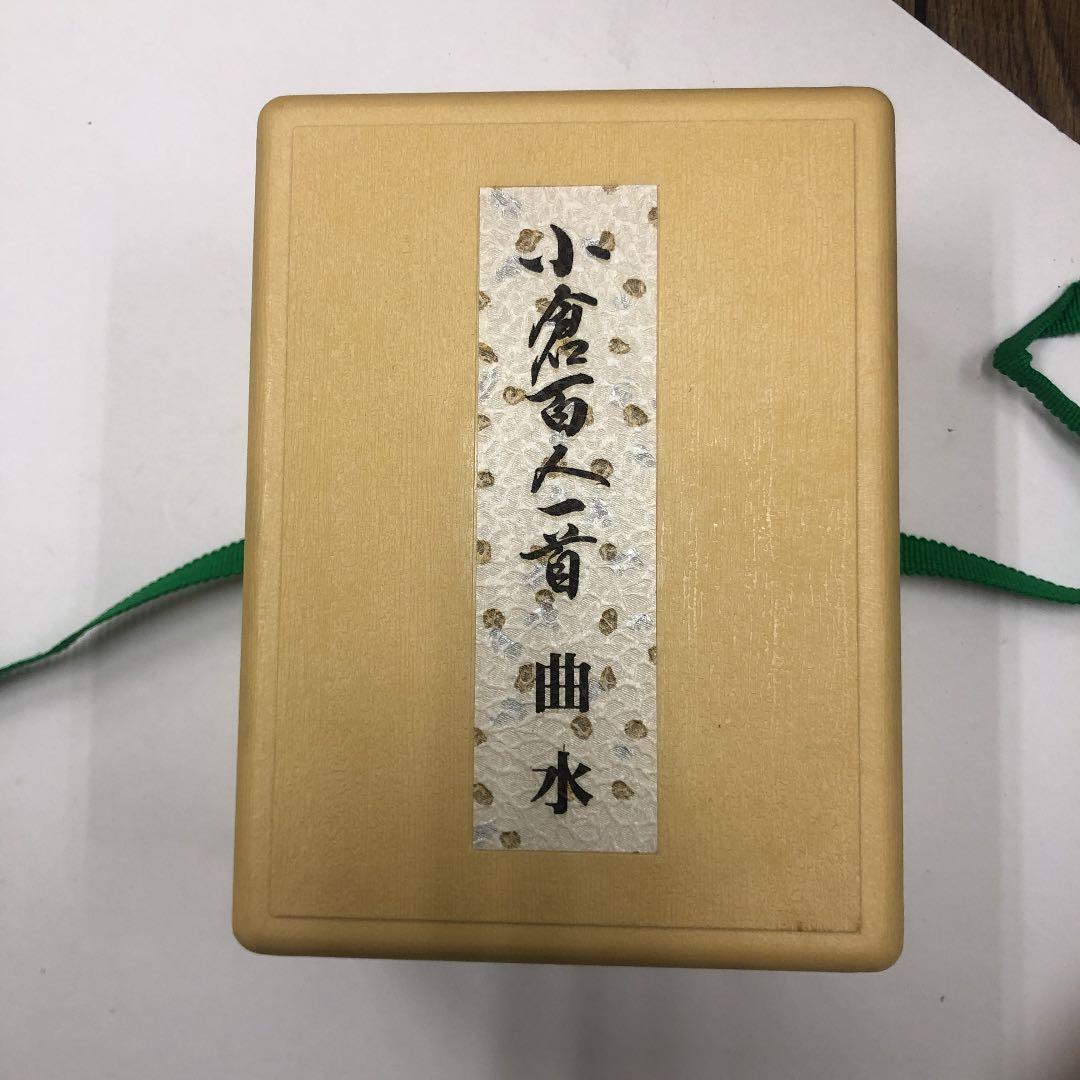 小倉百人一首 曲水